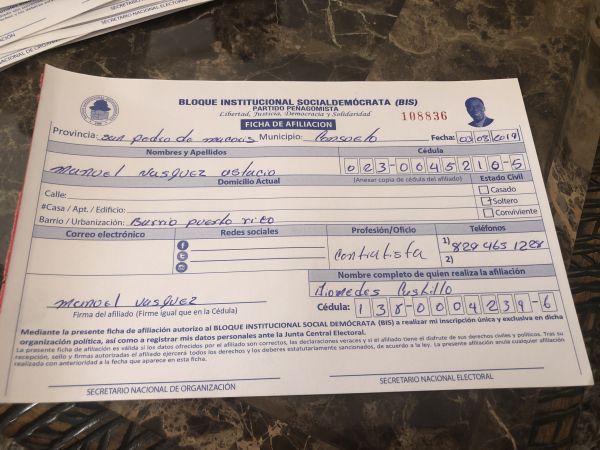 SECRETARIO NACIONAL
NACIONAL DE ORGANIZACIÓN
BLOQUE INSTITUCIONAL SOCIALDEMÓCRATA (BIS)
PARTIDO PEÑAGOMISTA
Libertad, Justicia, Democracia y Solidaridad
108836
FICHA DE AFILIACION
Provincia: san pedro de macoris Municipio: Consuelo Fecha: 03/03/2019
Nombres y Apellidos Cédula
manuel vasquez astacio 023-0045210-5
Domicilio Actual (Anexar copia de cédula del afiliado) Estado Civil
Calle: Casado
#Casa / Apt. / Edificio: Soltero
Barrio / Urbanización: Barrio puerto rico Conviviente
Correo electrónico Redes sociales Profesión/Oficio Teléfonos
contratista 1) 829 465 1228
2)
Nombre completo de quien realiza la afiliación
Diomedes Castillo
manuel vasquez Cédula: 138-0004239-6
Firma del afiliado (Firme igual que en la Cédula)
Mediante la presente ficha de afiliación autorizo al BLOQUE INSTITUCIONAL SOCIAL DEMÓCRATA (BIS) a realizar mi inscripción única y exclusiva en dicha
organización política, así como a registrar mis datos personales ante la Junta Central Electoral.
La presente ficha de afiliación es válida si los datos ofrecidos por el afiliado son correctos, las declaraciones veraces y si el afiliado tiene el disfrute de sus derechos civiles y políticos. Tras su
recepción, sello y firmas autorizadas el afiliado ejercerá todos los derechos y los deberes estatutariamente sancionados, de acuerdo a la ley. La presente afiliación anula cualquier afiliación
realizada con anterioridad a la fecha que aparece en esta ficha.
SECRETARIO NACIONAL DE ORGANIZACIÓN SECRETARIO NACIONAL ELECTORAL